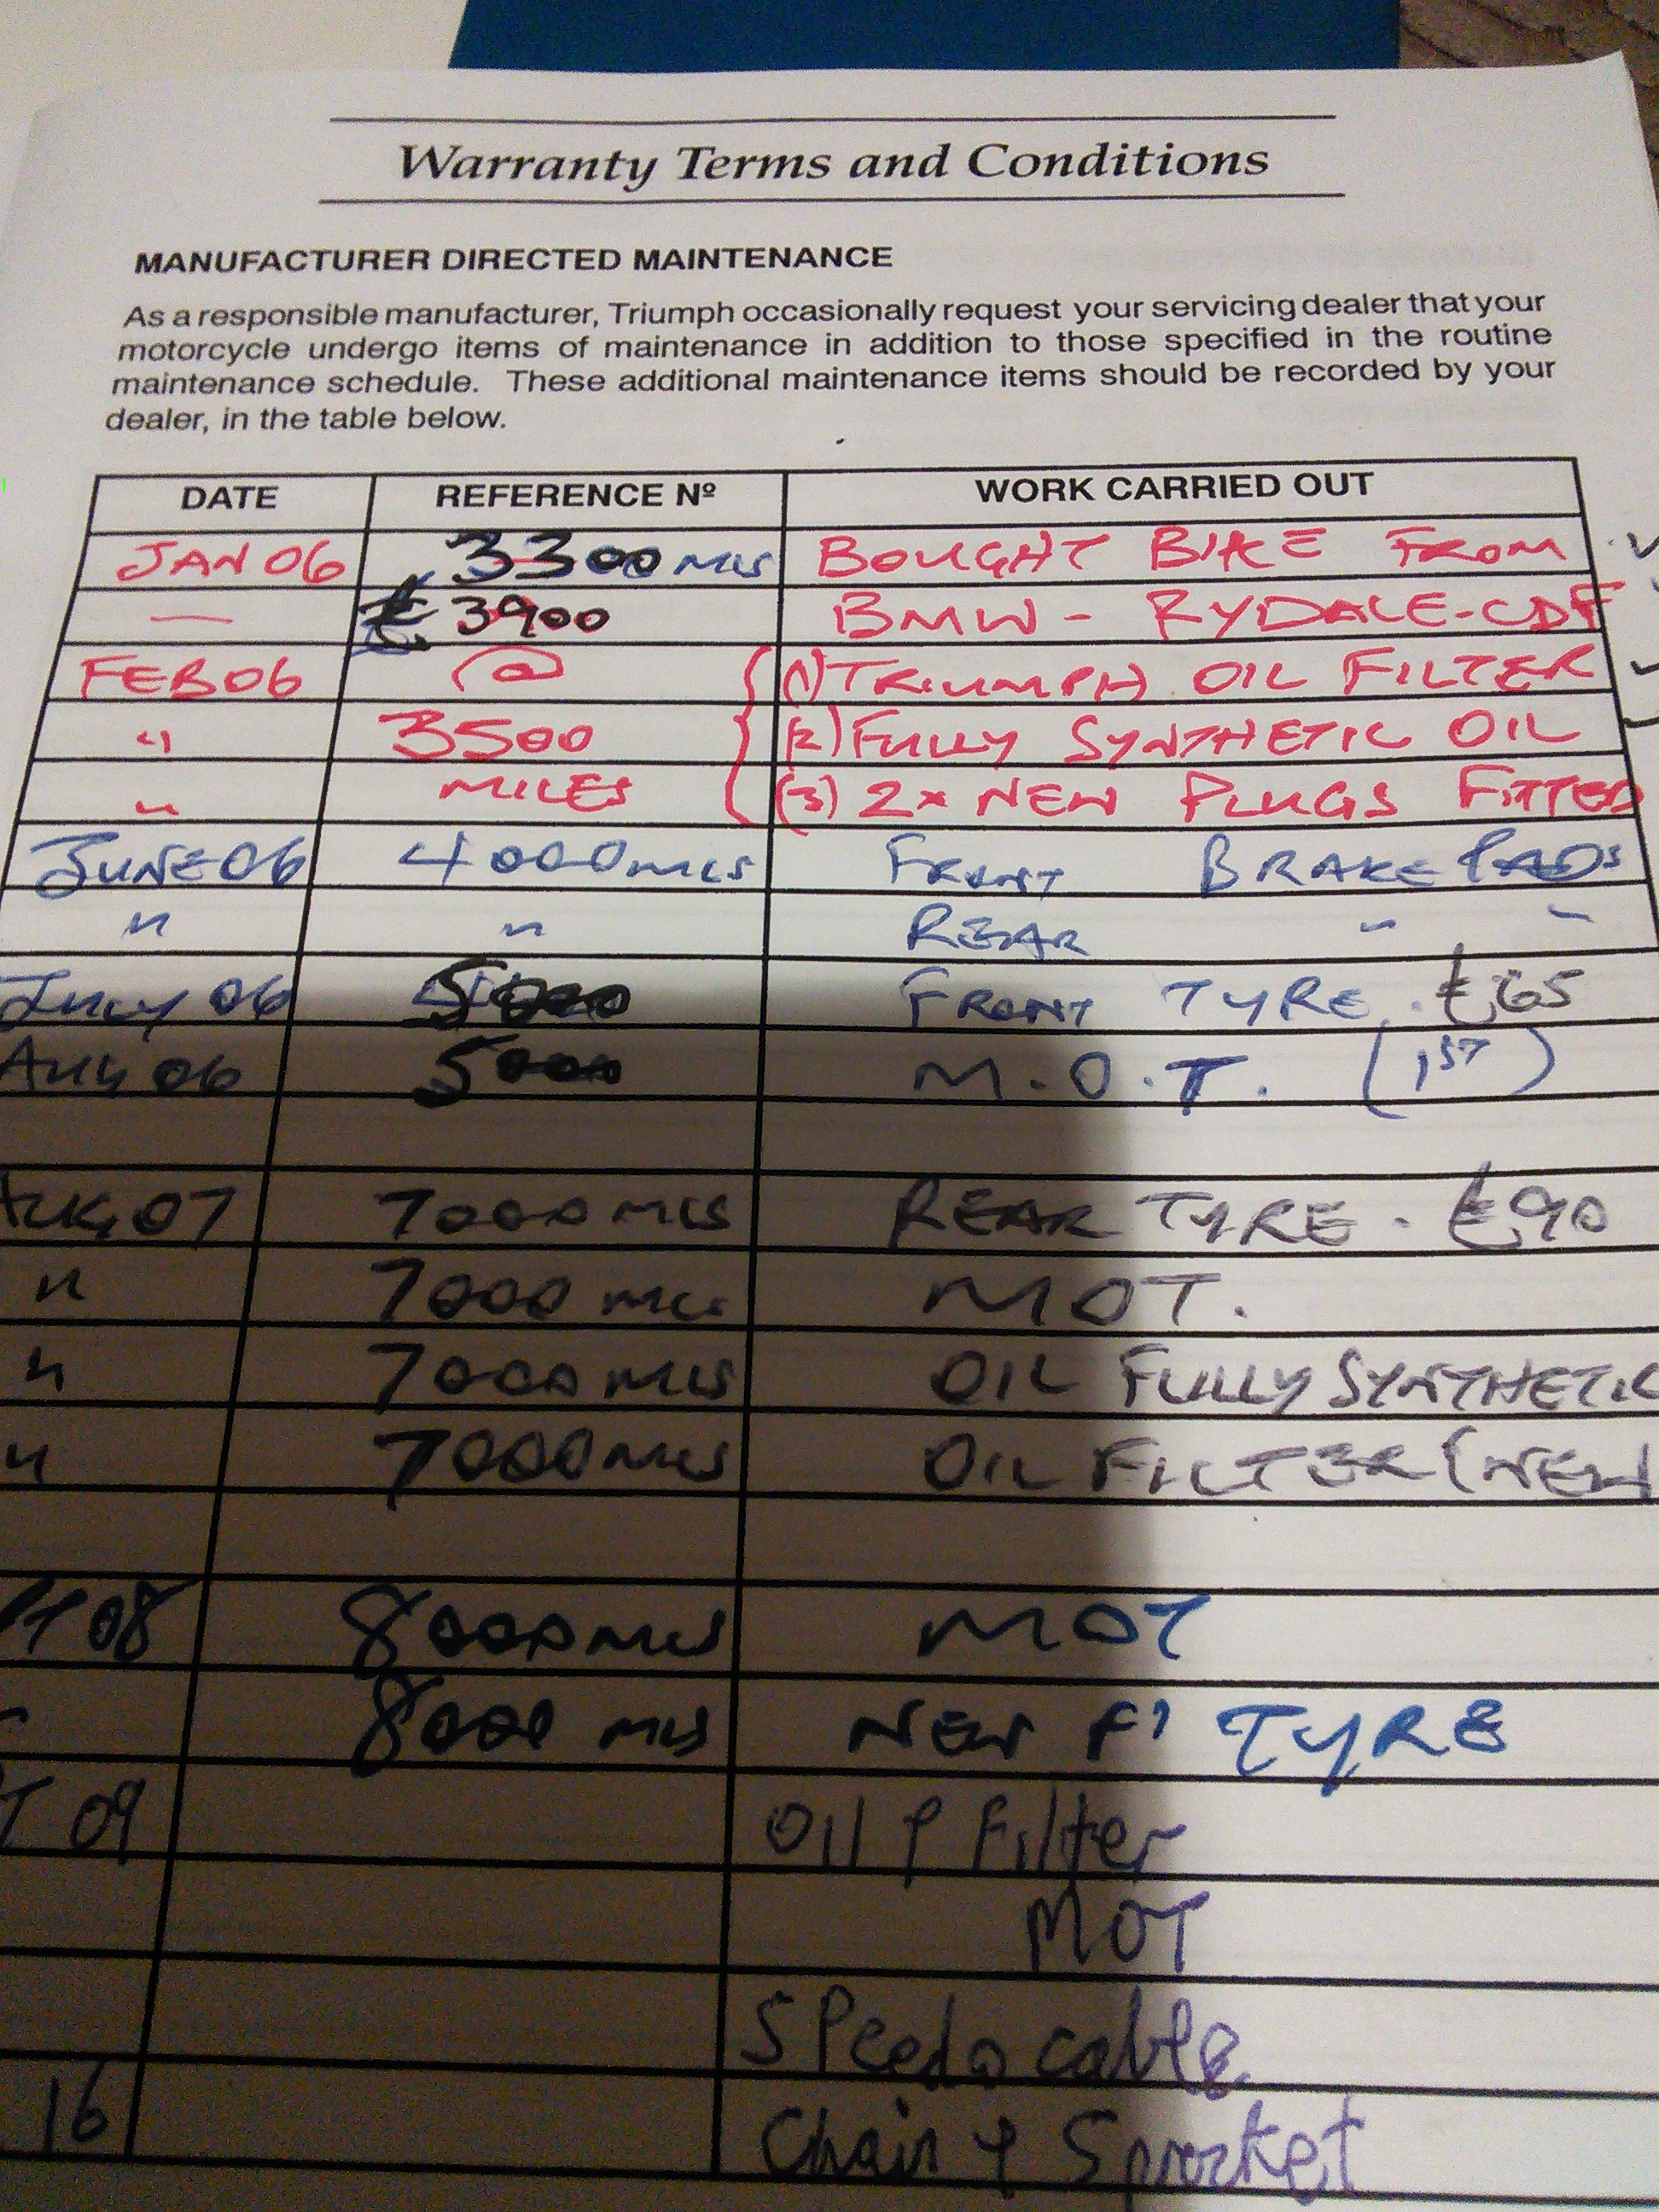 Warranty Terms and Conditions
MANUFACTURER DIRECTED MAINTENANCE
As a responsible manufacturer, Triumph occasionally request your servicing dealer that your
motorcycle undergo items of maintenance in addition to those specified in the routine
maintenance schedule. These additional maintenance items should be recorded by your
dealer, in the table below.
DATE REFERENCE Nº WORK CARRIED OUT
JAN 06 3300 MLS BOUGHT BIKE FROM
— £3900 BMW - RYDALE-CDF
FEB 06 @ (1) TRIUMPH OIL FILTER
" 3500 (2) FULLY SYNTHETIC OIL
" MILES (3) 2x NEW PLUGS FITTED
JUNE 06 4000 MLS FRONT BRAKE PADS
" " REAR " "
JULY 06 5000 FRONT TYRE. £65
AUG 06 5000 M.O.T. (1ST)
07 7000 MLS REAR TYRE. £90
" 7000 MLS MOT.
" 7000 MLS OIL FULLY SYNTHETIC
" 7000 MLS OIL FILTER (NEW
08 8000 MLS MOT
8000 MLS NEW F' TYRE
T 09 Oil & Filter
MOT
Speedo cable
16 Chain & Sprocket